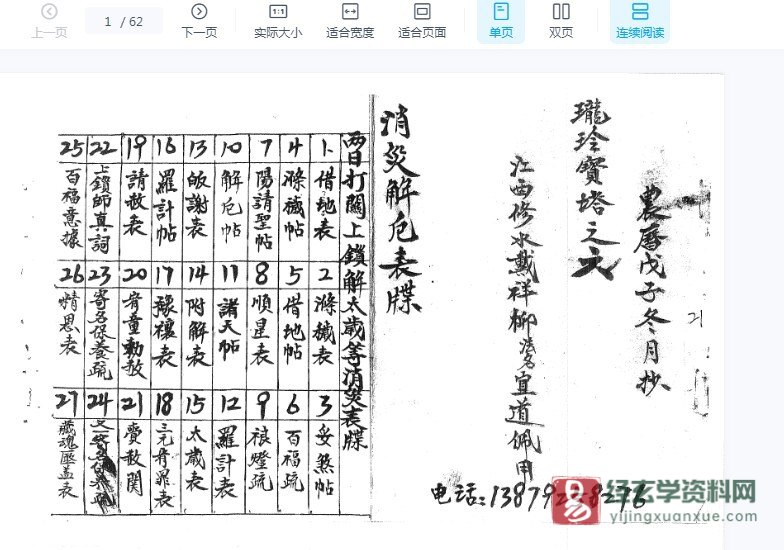 上一页
1 / 62
下一页
实际大小
适合宽度
适合页面
单页
双页
连续阅读
農曆戊子冬月抄
瓏玲寶塔之文
江西修水戴祥柳法名宜道佩用
消災解厄表牒
電话:
兩日打關上鎖解太歲等消災表牒
1 借地表
2 滌穢表
3 妥煞帖
4 滌穢帖
5 借地帖
6 百福疏
7 陽請聖帖
8 順星表
9 禳燈疏
10 解厄帖
11 諸天帖
12 羅計表
13 皈謝表
14 附解表
15 太歲表
16 羅計帖
17 禳表
18 三元宥罪表
19 請赦表
20 宥童勅赦
21 賫赦関
22 上鎖師真詞
23 寄名保養疏
24
25 百福意據
26 情思表
27 藏魂匣盖表
易
经玄学资料网
yijingxuanxue.com